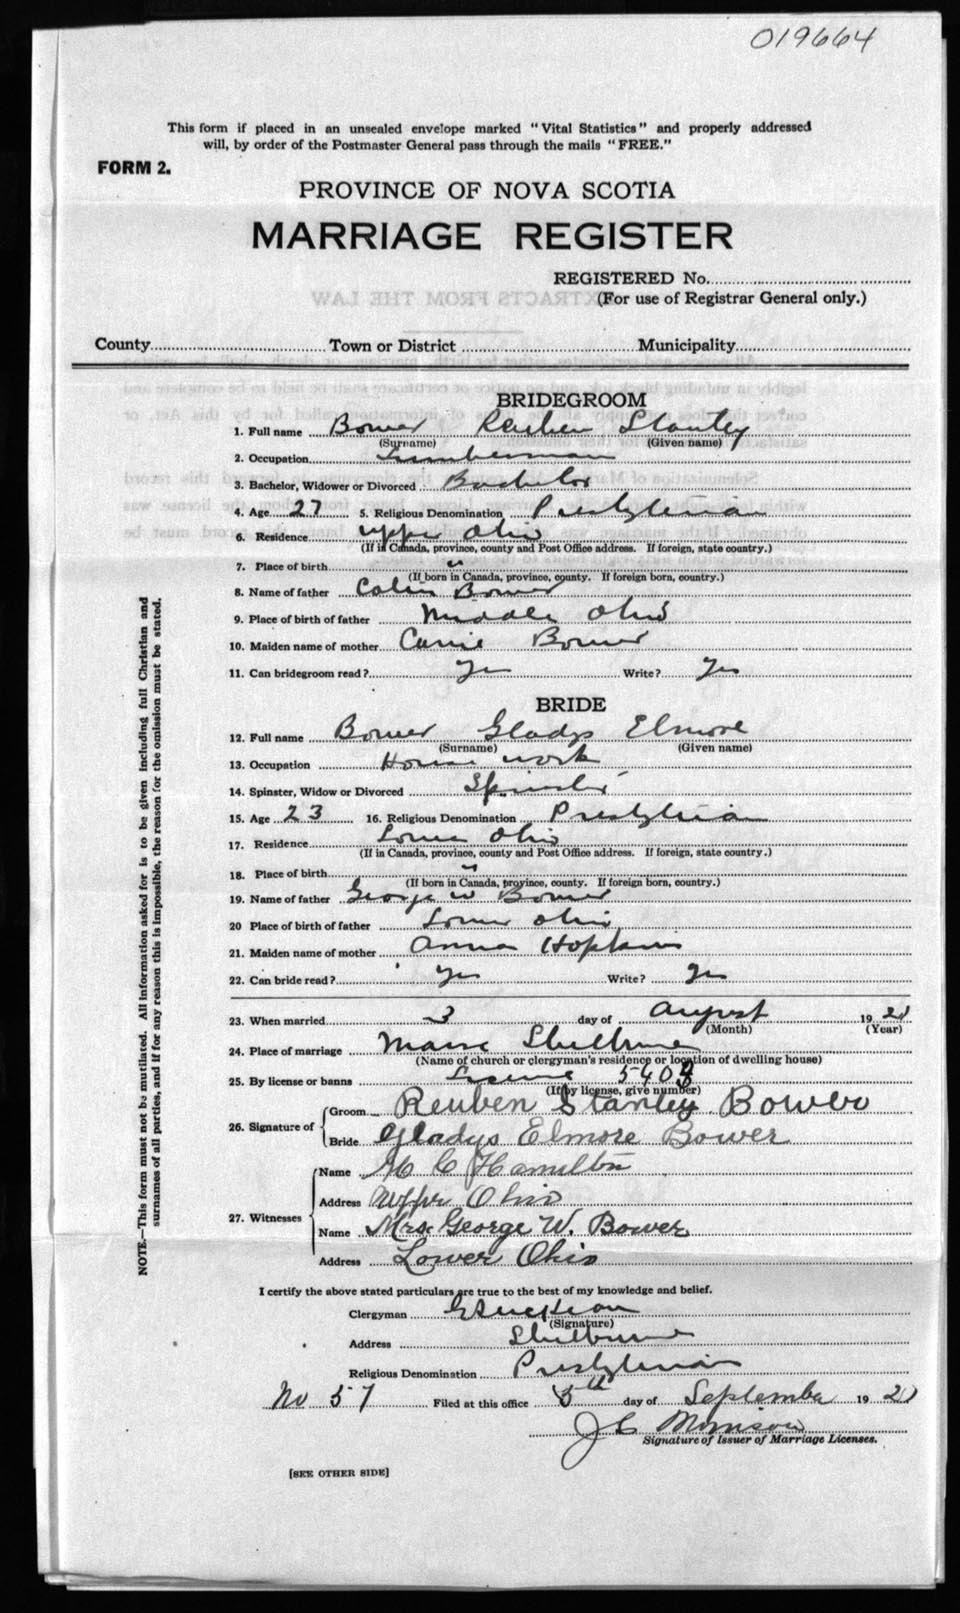 019664
This form if placed in an unsealed envelope marked "Vital Statistics" and properly addressed
will, by order of the Postmaster General pass through the mails "FREE."
FORM 2.
PROVINCE OF NOVA SCOTIA
MARRIAGE REGISTER
REGISTERED No.
(For use of Registrar General only.)
EXTRACTS FROM THE LAW
County Town or District Municipality
BRIDEGROOM
1. Full name Bower Reuben Stanley
(Surname) (Given name)
2. Occupation Lumberman
3. Bachelor, Widower or Divorced Bachelor
4. Age 27 5. Religious Denomination Presbyterian
6. Residence Upper Ohio
(If in Canada, province, county and Post Office address. If foreign, state country.)
7. Place of birth "
(If born in Canada, province, county. If foreign born, country.)
8. Name of father Colin Bower
9. Place of birth of father Middle Ohio
10. Maiden name of mother Carrie Bower
11. Can bridegroom read? Yes Write? Yes
BRIDE
12. Full name Bower Gladys Elmore
(Surname) (Given name)
13. Occupation House work
14. Spinster, Widow or Divorced Spinster
15. Age 23 16. Religious Denomination Presbyterian
17. Residence Lower Ohio
(If in Canada, province, county and Post Office address. If foreign, state country.)
18. Place of birth "
(If born in Canada, province, county. If foreign born, country.)
19. Name of father George W Bower
20 Place of birth of father Lower Ohio
21. Maiden name of mother Anna Hopkins
22. Can bride read? Yes Write? Yes
23. When married 3 day of August 19
(Month) (Year)
24. Place of marriage Manse Shelburne
(Name of church or clergyman's residence or location of dwelling house)
25. By license or banns License 5403
(If by license, give number)
26. Signature of Groom Reuben Stanley Bower
Bride Gladys Elmore Bower
27. Witnesses Name H C Hamilton
Address Upper Ohio
Name Mrs. George W. Bower
Address Lower Ohio
NOTE.—This form must not be mutilated. All information asked for is to be given including full Christian and
surnames of all parties, and if for any reason this is impossible, the reason for the omission must be stated.
I certify the above stated particulars are true to the best of my knowledge and belief.
Clergyman
(Signature)
Address Shelburne
Religious Denomination Presbyterian
No 57 Filed at this office 5th day of September 19
J C Morrison
Signature of Issuer of Marriage Licenses.
[SEE OTHER SIDE]